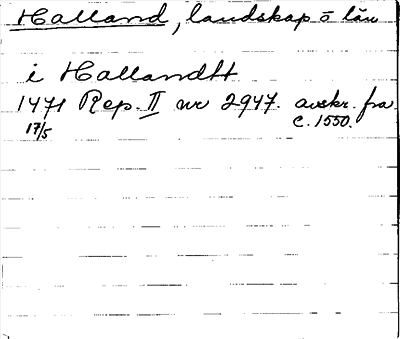 Halland, landskap o län
i Hallandtt
1471 Rep. II nr 2947. avskr. fra
17/5 c. 1550.